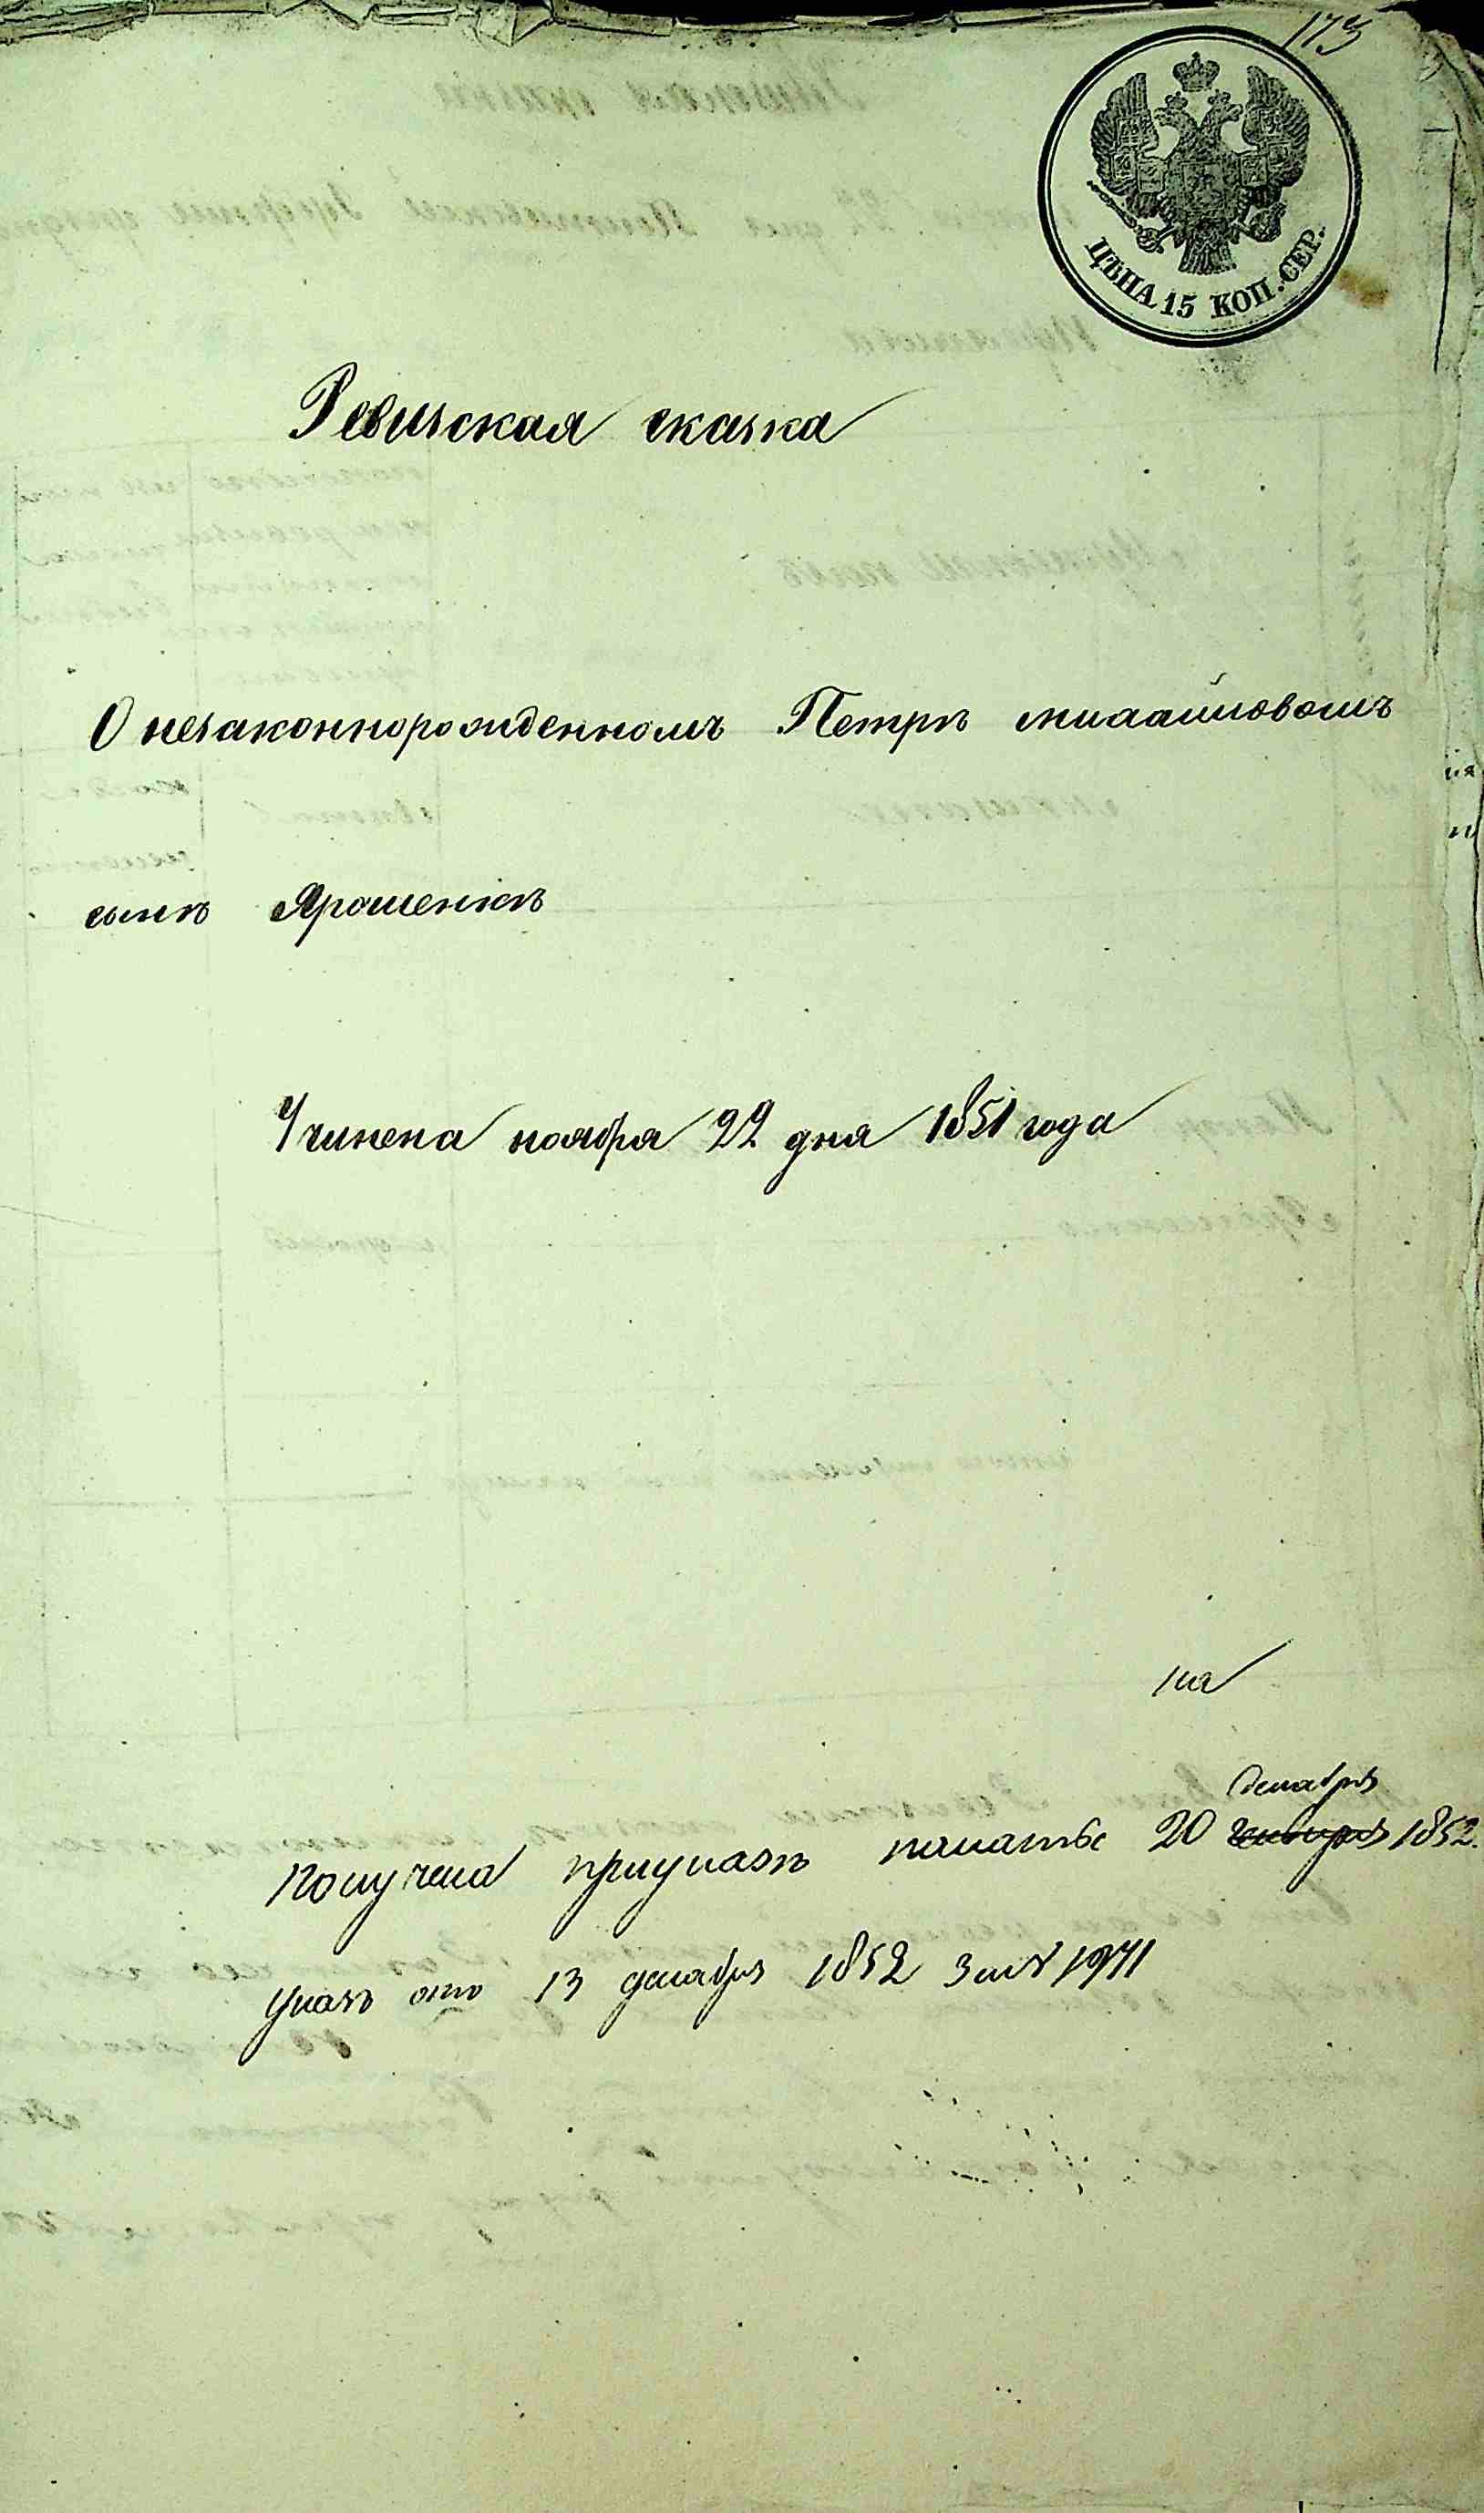 173
ЦѢНА 15 КОП. СЕР.
Ревизская сказка
О незаконнорожденномъ Петрѣ
сынѣ Ярошенкѣ
Учинена ноября 22 дня 1851 года
на
декабря
Получена приуказѣ палаты 20 1852.
указъ отъ 13 декабря 1852 за №